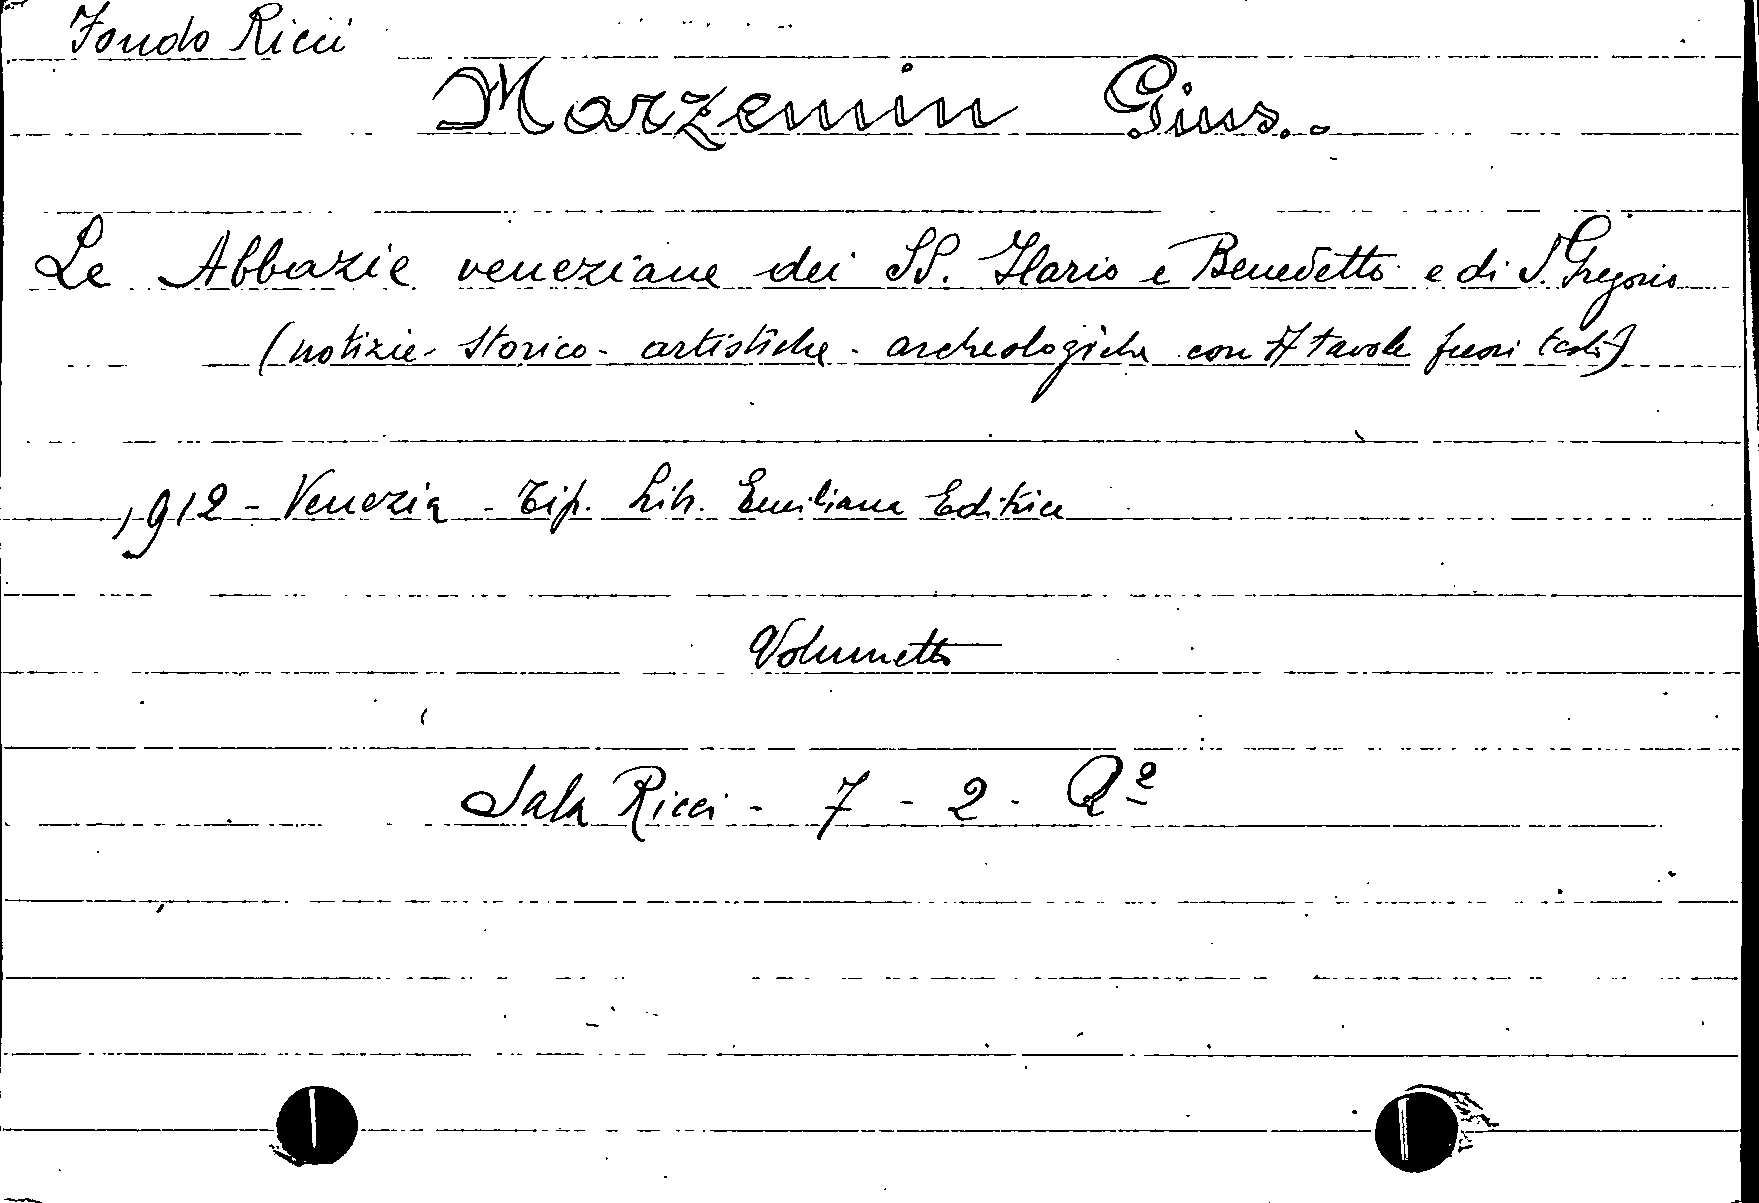 Fondo Ricci
Marzemin Gius..
Le Abbazie veneziane dei SS. Ilario e Benedetto e di S. Gregorio
(notizie - storico - artistiche - archeologiche con 7 tavole fuori testo)
1912 - Venezia - Tip. Lib. Emiliana Editrice
Volumetto
Sala Ricci - 7 - 2 - Q º